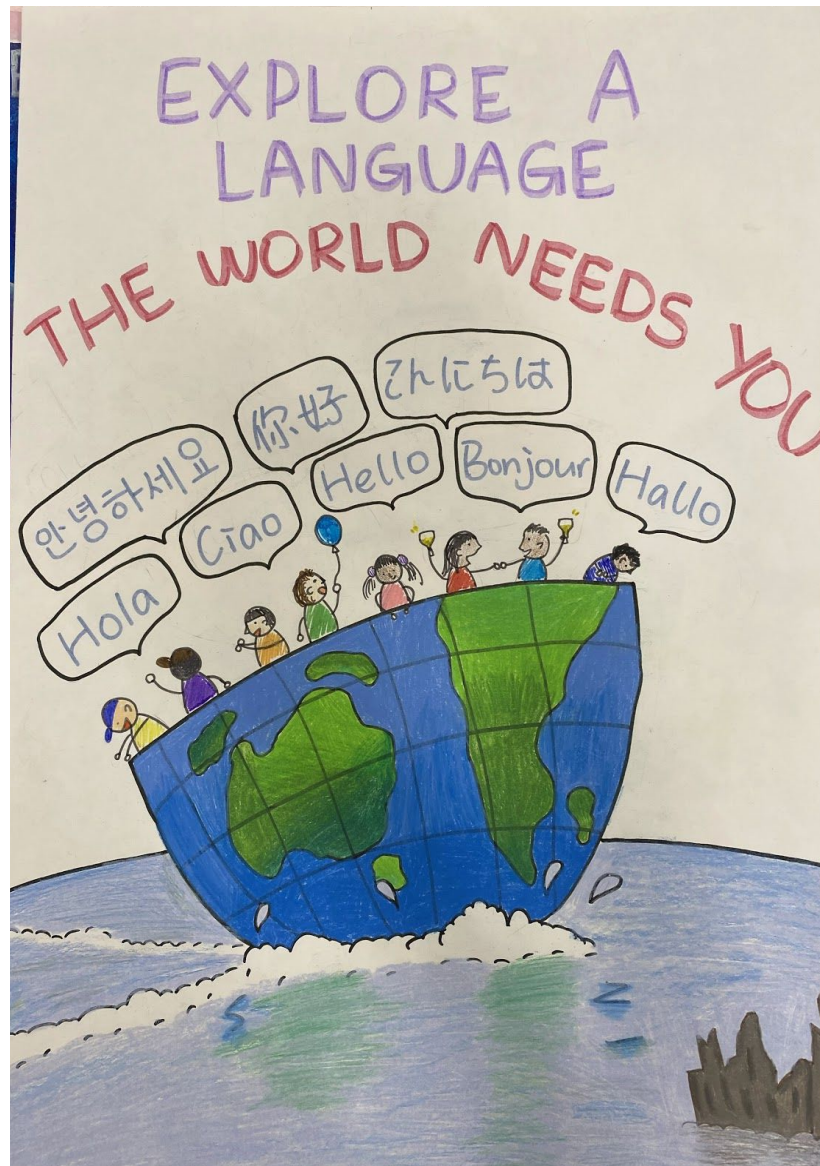 EXPLORE A
LANGUAGE
THE WORLD NEEDS YOU
안녕하세요
你好
こんにちは
Hola
Ciao
Hello
Bonjour
Hallo